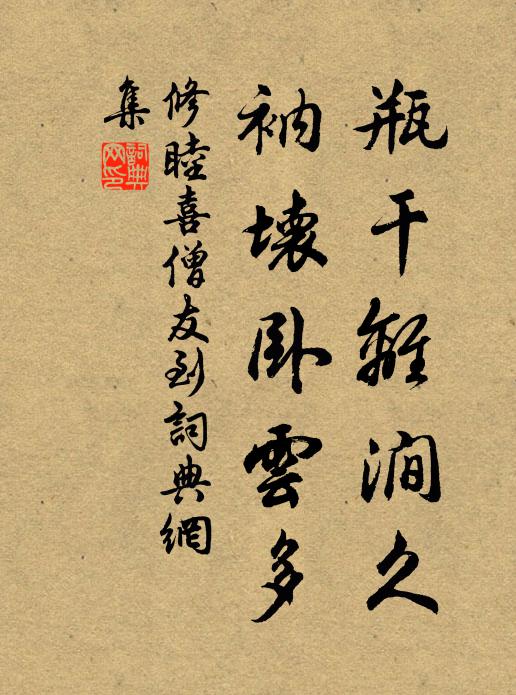 瓶干離澗久
衲壞臥雲多
修睦喜僧友到詞典網
集
詞典
网印